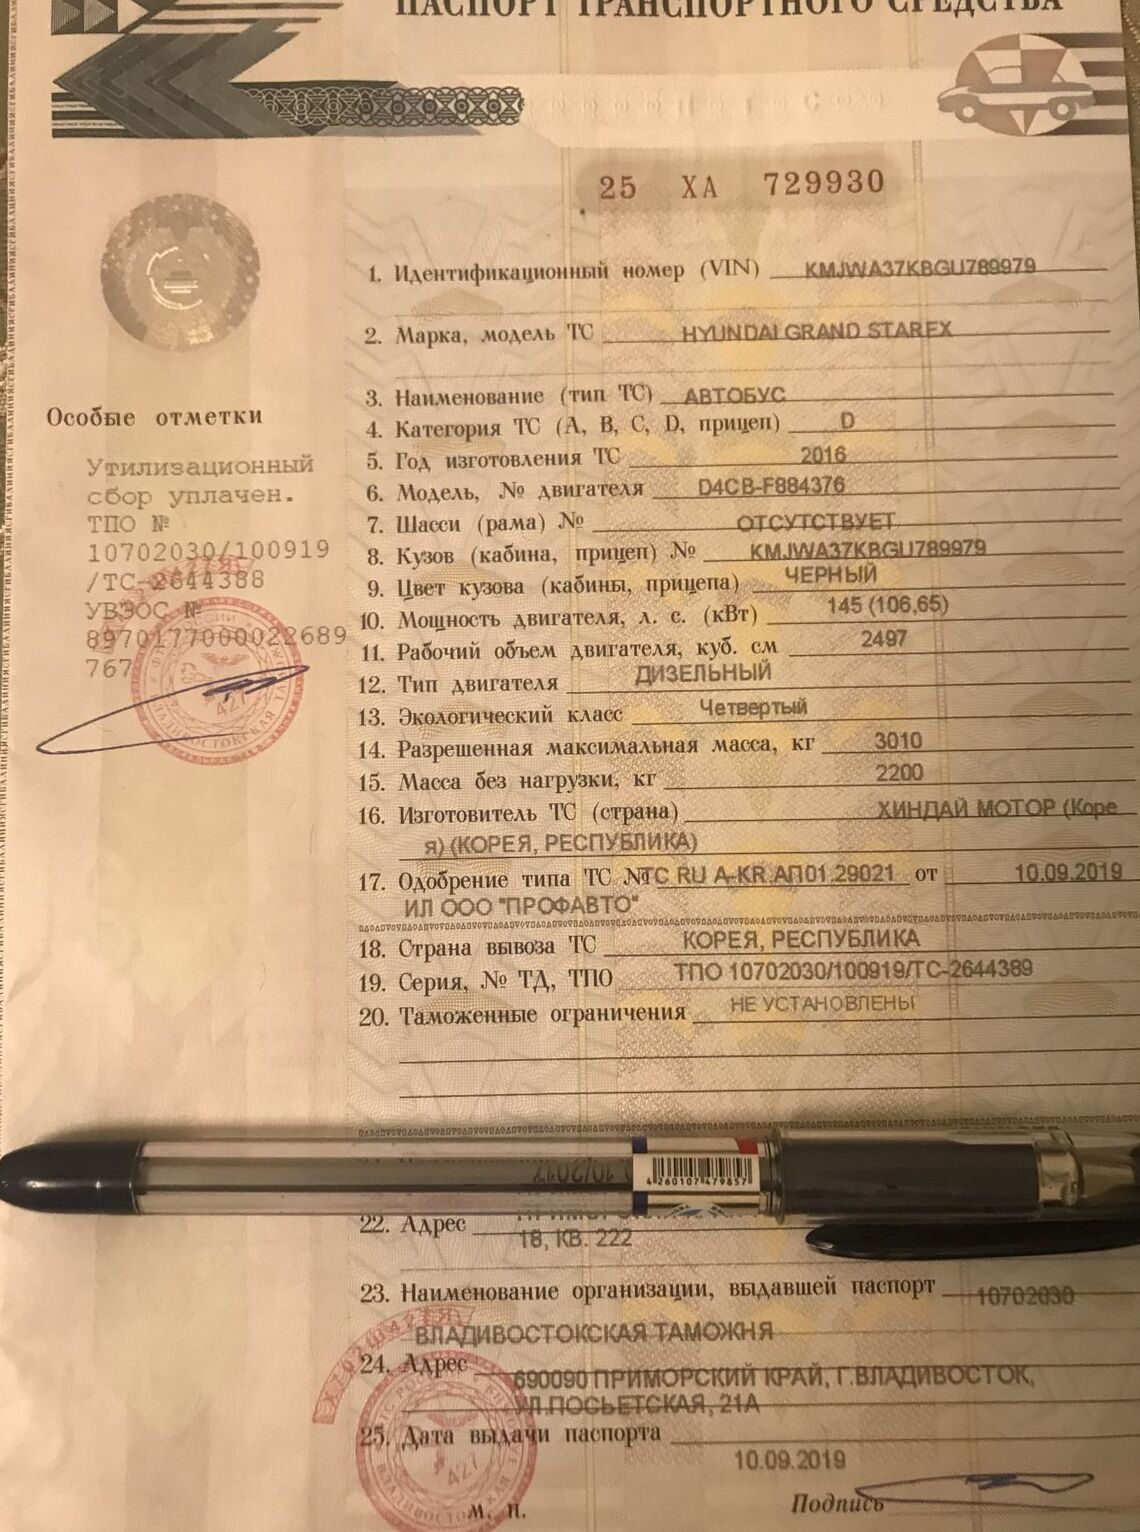 ПАСПОРТ ТРАНСПОРТНОГО СРЕДСТВА
25 ХА 729930
1. Идентификационный номер (VIN) KMJWA37KBGU789979
2. Марка, модель ТС HYUNDAI GRAND STAREX
3. Наименование (тип ТС) АВТОБУС
4. Категория ТС (А, В, С, D, прицеп) D
5. Год изготовления ТС 2016
6. Модель, № двигателя D4CB-F884376
7. Шасси (рама) № ОТСУТСТВУЕТ
8. Кузов (кабина, прицеп) № KMJWA37KBGU789979
9. Цвет кузова (кабины, прицепа) ЧЕРНЫЙ
10. Мощность двигателя, л. с. (кВт) 145 (106,65)
11. Рабочий объем двигателя, куб. см 2497
12. Тип двигателя ДИЗЕЛЬНЫЙ
13. Экологический класс Четвертый
14. Разрешенная максимальная масса, кг 3010
15. Масса без нагрузки, кг 2200
16. Изготовитель ТС (страна) ХИНДАЙ МОТОР (Коре
я) (КОРЕЯ, РЕСПУБЛИКА)
17. Одобрение типа ТС № ТС RU A-KR.АП01.29021 от 10.09.2019
ИЛ ООО "ПРОФАВТО"
18. Страна вывоза ТС КОРЕЯ, РЕСПУБЛИКА
19. Серия, № ТД, ТПО ТПО 10702030/100919/ТС-2644389
20. Таможенные ограничения НЕ УСТАНОВЛЕНЫ
4260107479857
22. Адрес
18, КВ. 222
23. Наименование организации, выдавшей паспорт 10702030
ВЛАДИВОСТОКСКАЯ ТАМОЖНЯ
24. Адрес 690090 ПРИМОРСКИЙ КРАЙ, Г.ВЛАДИВОСТОК,
УЛ.ПОСЬЕТСКАЯ, 21А
25. Дата выдачи паспорта
10.09.2019
М. П. Подпись
Особые отметки
Утилизационный
сбор уплачен.
ТПО №
10702030/100919
/ТС-2644388
УВЭОС №
8970177000022689
767
427
427